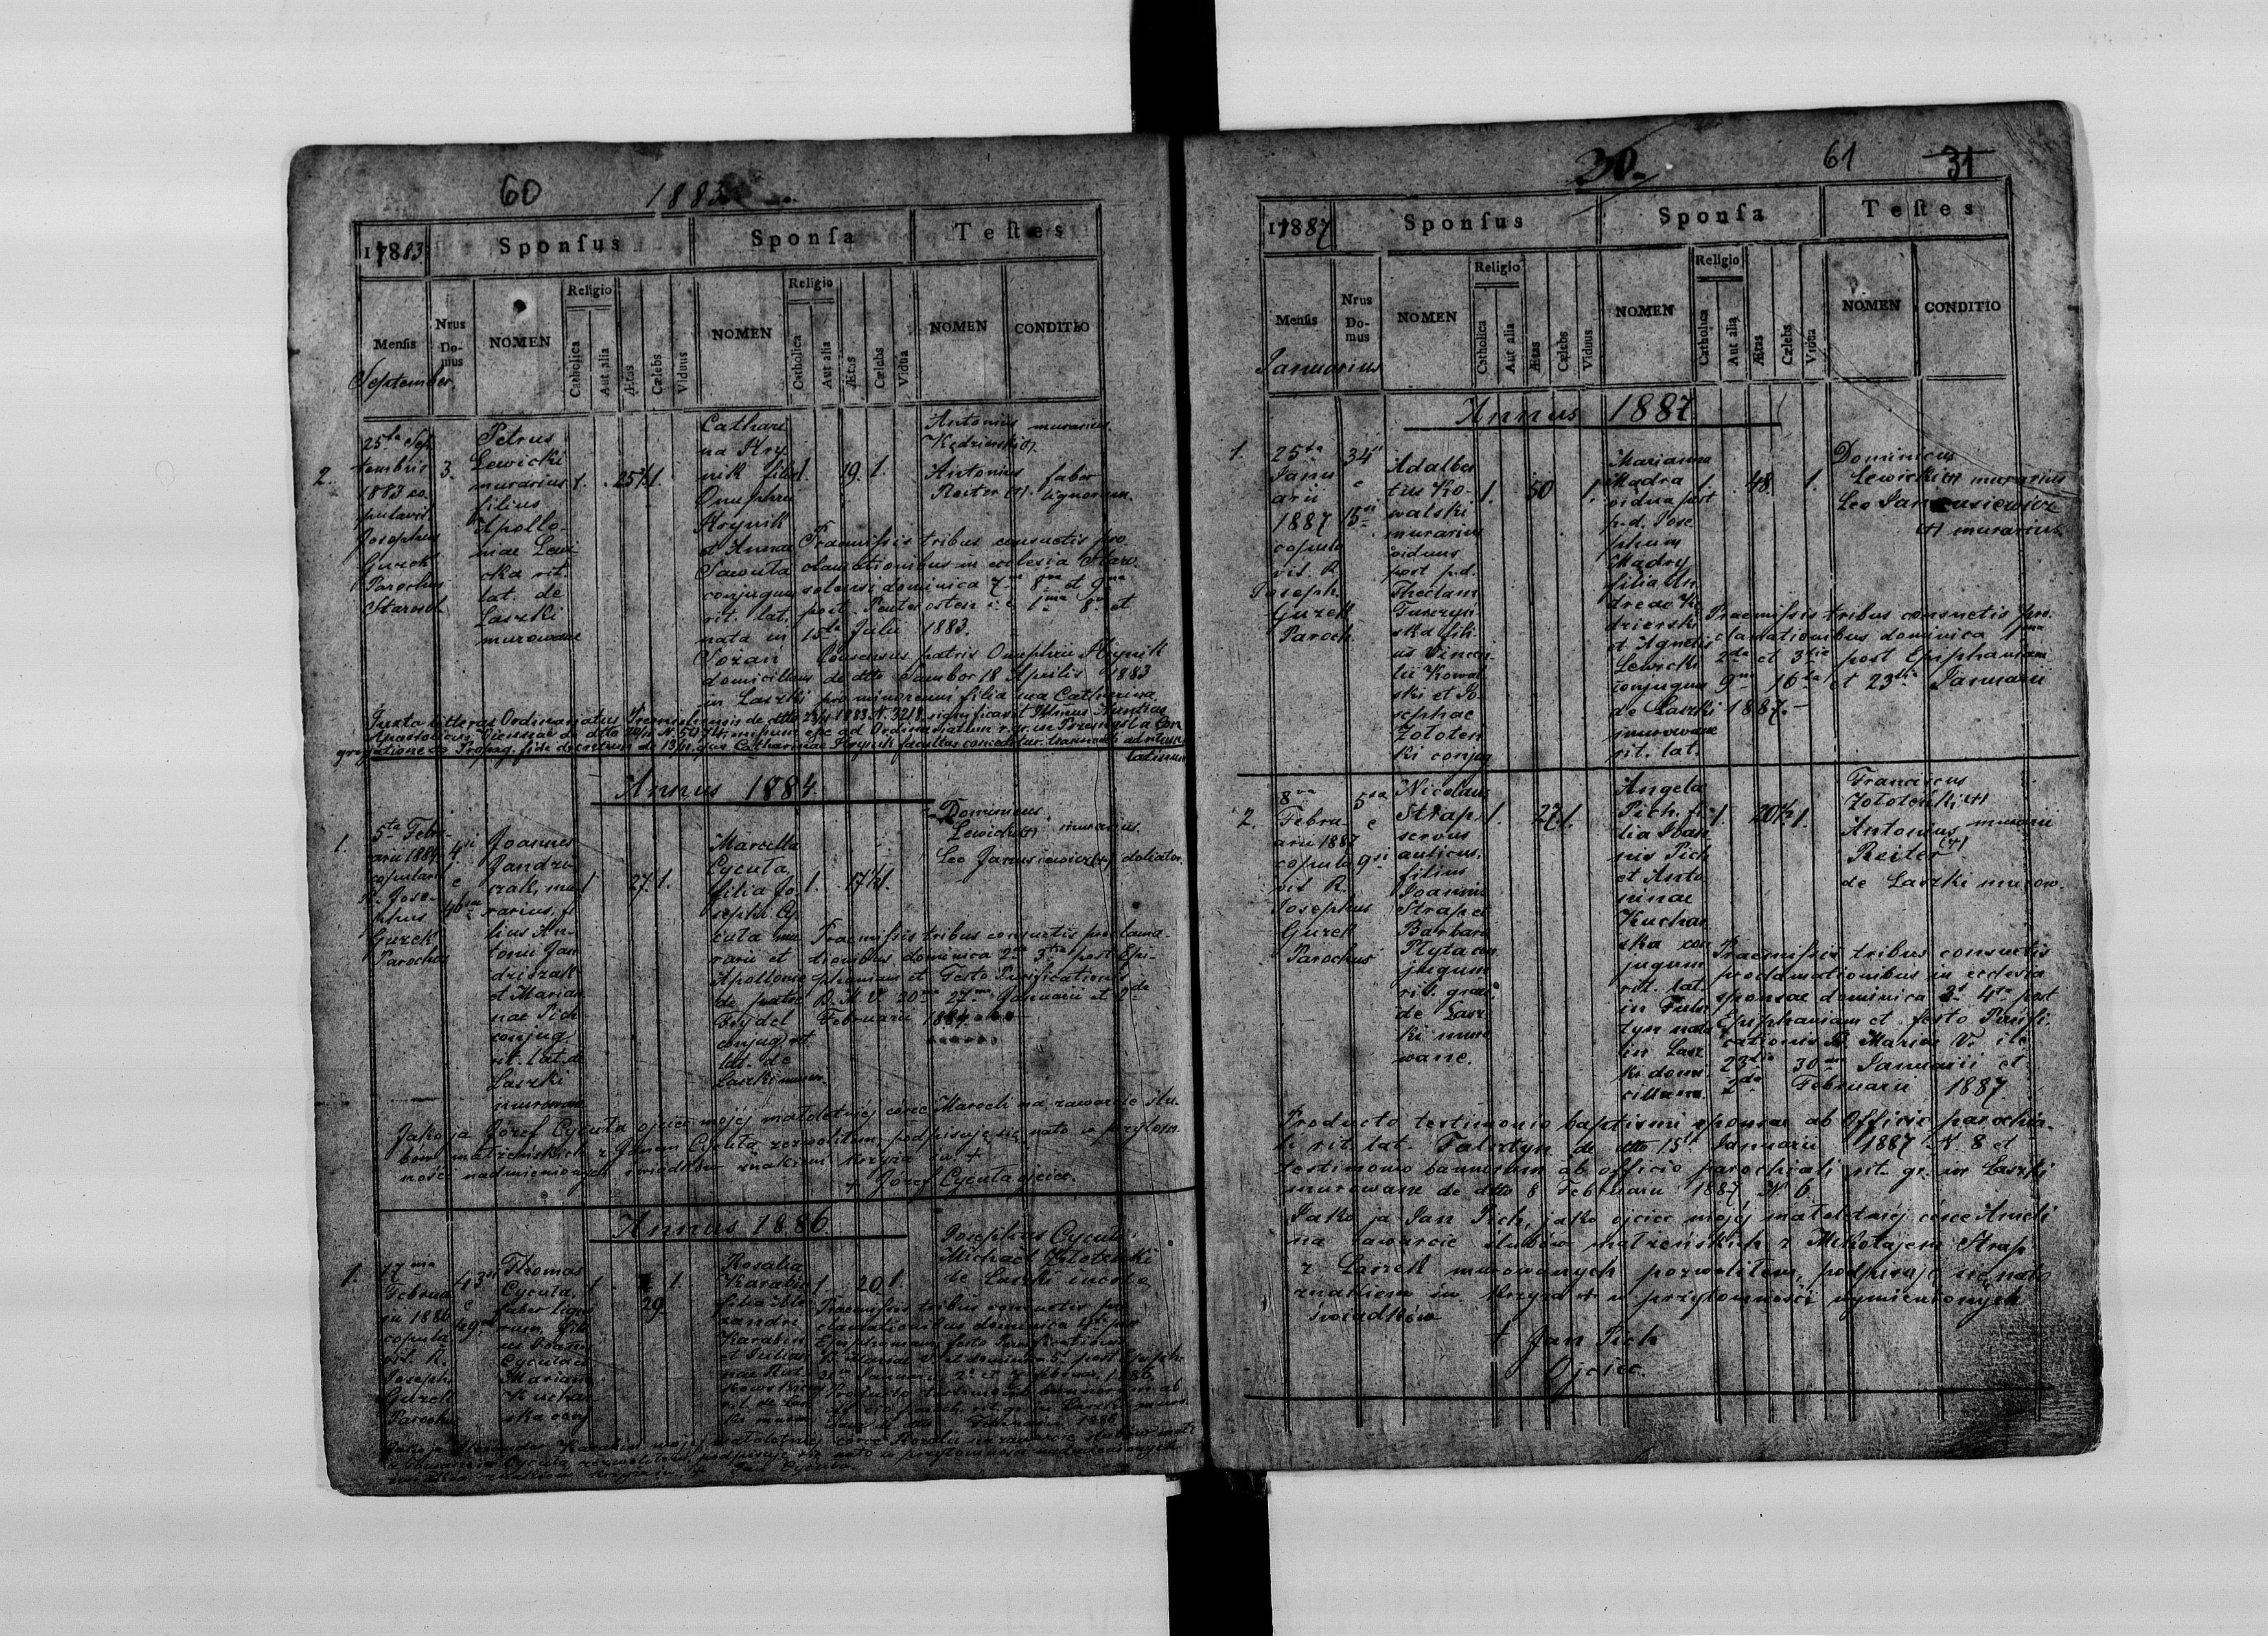 60
1883
17883.
Sponſus
Sponſa
Teſtes
Menſis
September
Nrus Do-mus
NOMEN
Religio
Catholica
Aut alia
Ætas
Cælebs
Viduus
NOMEN
Religio
Catholica
Aut alia
Ætas
Cælebs
Vidua
NOMEN
CONDITIO
2.
25ta Sep
tembris
1883 co
pulavit
Josephus
Gurek
Parochus
Starosol
3.
Petrus
Lewicki
murarius
filius
Apollo-
niae Lewi
cka rit.
lat. de
Laszki
murowane
1.
25½
1.
Cathari
na Hry
nik filia
Onuphrii
Hrynik
et Annae
Sawuta
conjugum
rit. lat.
nata in
Sozań
domicilians
in Laszki
1.
19.
1.
Antonius murarius
Kędzierski (+)
Antonius faber
Reiter (+) lignorum.
Praemissis tribus consuetis pro
clamationibus in ecclesia Staro
solensi dominica 7ma 8va et 9na
post Pentecosten i. e. 1ma 8va et
15ta Julii 1883.
Consensus patris Onuphrii Hrynik
de dtto Sambor 18 Aprilis 1883
pro minorenni filia sua Catharina
Juxta litteras Ordinariatus Premisliensis de dtto 1883 N. 3218 significavit Illmus Nuntius
Apostolicus Viennae de dtto missum esse ad Ordinariatum r. gr. in Przemyśl a Con
gregatione de Propag. fide decretum de quo Catharinae Hrynik facultas conceditur transeundi ad ritum
latinum
Annus 1884.
1.
5ta Febru-
arii 1884
copulavit
R. Jose-
phus
Gurek
Parochus
4ti
e
40
Joannes
Jandzi-
szak, mu
rarius, fi
lius An-
tonii Jan
dziszak
et Marian
nae Pich
conjug.
rit. lat. de
Laszki
murowane
1.
27.
1.
Marcella
Cycuta
filia Jo
sephi Cy
cuta mu
rarii et
Apolloniae
de patre
Frydel
conjug. rit.
lat. de
Laszki murow.
1.
17½
1.
Dominicus
Lewicki (+) murarius.
Leo Jarusiewicz (+) doliator.
Praemissis tribus consuetis proclama-
tionibus dominica 2da 3tia post Epi-
phaniam et Festo Purificationis
B. M. V. 20ma 27ma Januarii et 2da
Februarii 1884.
Jako ja Józef Cycuta ojciec mojéj małoletniéj córce Marceli na zawarcie ślu-
bów małżeńskich z Janem Cycutą zezwoliłem, podpisuję się na to w przytom-
ności nadmienionych świadków znakiem krzyża św. +
+ Józef Cycuta ojciec.
Annus 1886.
1.
17ma
Februa
rii 1886
copula
vit R.
Joseph.
Gurek
Parochus
43ti
e
Thomas
Cycuta,
faber ligno
rum, fili
us Joann.
Cycuta et
Mariann.
Kuchar
ska conj
1.
29.
1.
Rosalia
Karabin
filia Ale
xandri
Karabin
et Julian
nae Rut
kowska
rit. de Las
ki murow
1.
20
1.
Josephus Cycuta
Michael Zołoteński
de Laszki incolae
Praemissis tribus consuetis pro
clamationibus dominica 4ta post
Epiphaniam, festo Purificationis
B. Mariae V. et dominica 5ta post Epiph.
31ma Januarii 2da et 7 Februar. 1886.
Producto testimonio bannorum ab
officio paroch. rit. gr. in Laszki murow.
Februarii 1886
Jako ja Alexander Karabin mojéj małoletniéj córce Rozalii na zawarcie ślubów małż.
z Tomaszem Cycutą zezwoliłem, podpisuję się na to w przytomności nadmienionych
świadków znakiem krzyża +
30.
61
31
17887
Sponſus
Sponſa
Teſtes
Menſis
Januarius
Nrus Do-mus
NOMEN
Religio
Catholica
Aut alia
Ætas
Cælebs
Viduus
NOMEN
Religio
Catholica
Aut alia
Ætas
Cælebs
Vidua
NOMEN
CONDITIO
Annus 1887.
1.
25ta
Janu
arii
1887
copula
vit. R.
Joseph
Gurek
Paroch.
34ti
e
15ti
Adalber
tus Ko-
walski
murarius
viduus
post p.d.
Theclam
Turczyń
ska fili
us Vincen-
tii Kowal
ski et Jo
sephae
Zołoteń
ki conjug
1.
50
1.
Marianna
Madra
vidua post
p.d. Jose
phum
Madry
filia An
dreae Kę
dzierski
et Agnetis
Lewicki
conjugum
de Laszki
murowane
rit. lat.
1.
48.
1.
Dominicus
Lewicki (+) murarius
Leo Jarusiewicz
(+) murarius
Praemissis tribus consuetis pro-
clamationibus dominica 1ma
2da et 3tia post Epiphaniam
9na 16ta et 23tia Januarii
1887.
2.
8va
Febru-
arii 1887
copula
vit R.
Josephus
Gurek
Parochus
5ta
e
9ti
Nicolaus
Strap
servus
aulicus,
filius
Joannis
Strap et
Barbara
Płyta con
jugum
rit. graec.
de Lasz
ki muro
wane.
1.
27.
1.
Angela
Pich fi-
lia Joan
nis Pich
et Anto
ninae
Kuchar
ska con
jugum
rit. lat.
in Fulsz
tyn nata
in Lasz
ki domi
cilians.
1.
20½
1.
Franciscus
Zołoteński (+)
Antonius murarii
Reiter (+)
de Laszki murow.
Praemissis tribus consuetis
proclamationibus in ecclesia
sponsae dominica 3a 4ta post
Epiphaniam et festo Purifi-
cationis B. Mariae V. i. e.
23tia 30ma Januarii et
2da Februarii 1887.
Producto testimonio baptismi sponsae ab Officio parochia-
li rit. lat. Falsztyn de dtto 15ta Januarii 1887 N. 8 et
testimonio bannorum ab officio parochiali rit. gr. in Laszki
murowane de dtto 8 Februarii 1887 N. 6.
Jako ja Jan Pich, jako ojciec mojéj małoletniéj córce Anieli
na zawarcie ślubów małżeńskich z Mikołajem Strap
z Laszek murowanych pozwoliłem, podpisuję się na to
znakiem św. krzyża + w przytomności wymienionych
świadków
+ Jan Pich
Ojciec.